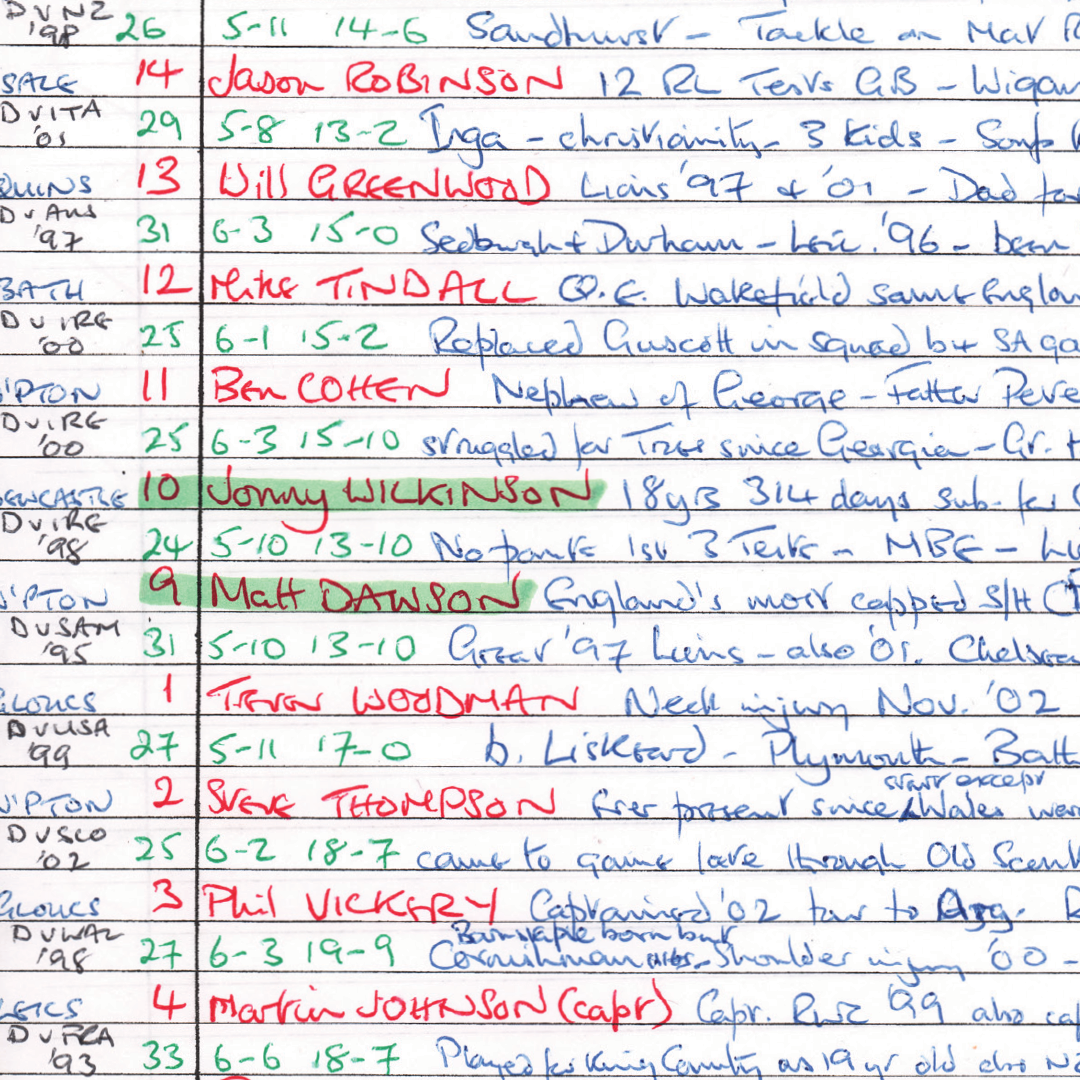 DVNZ '98 26 5-11 14-6 Sandhurst - Tackle on Mat
SALE 14 Jason ROBINSON 12 RL Tests GB - Wigan
DVITA '01 29 5-8 13-2 Inga - christianity - 3 kids - Soup
QUINS 13 Will GREENWOOD Lions '97 + '01 - Dad
DvAus '97 31 6-3 15-0 Sedbergh + Durham - Leic. '96 - been
BATH 12 Mike TINDALL Q.E. Wakefield same
DvIRE '00 25 6-1 15-2 Replaced Guscott in squad b4 SA
N'PTON 11 Ben COHEN Nephew of George - Father Pete
DvIRE '00 25 6-3 15-10 struggled for Tries since Georgia - Gr.
NEWCASTLE 10 Jonny WILKINSON 18yrs 314 days sub. for
DvIRE '98 24 5-10 13-10 No points 1st 3 Tests - MBE -
N'PTON 9 Matt DAWSON England's most capped S/H
DvSAM '95 31 5-10 13-10 Great '97 Lions - also '01. Chelsea
GLOUCS 1 Trevor WOODMAN Neck injury Nov. '02
DvUSA '99 27 5-11 17-0 b. Liskeard - Plymouth - Bath
N'PTON 2 Steve THOMPSON Ever present since Wales
start except
DvSCO '02 25 6-2 18-7 came to game late through Old Scouts
GLOUCS 3 Phil VICKERY Captained '02 tour to Arg.
Barnstaple born but
DvWAL '98 27 6-3 19-9 Cornishman - Shoulder injury '00 -
LEICS 4 Martin JOHNSON (capt) Capt. RWC '99 also
DvFRA '93 33 6-6 18-7 Played for King Country as 19 yr old also